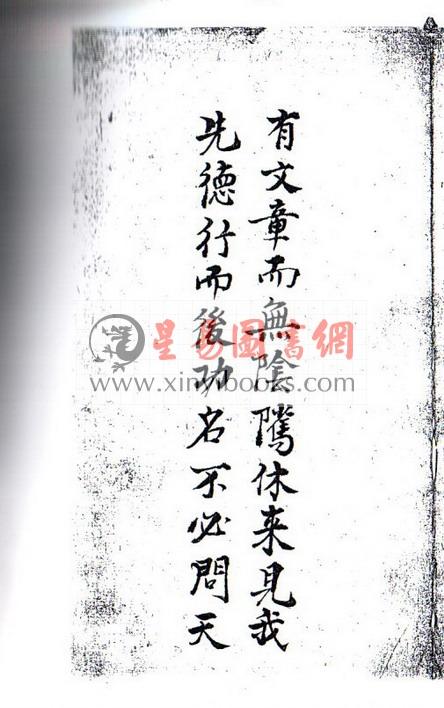 有文章而無陰騭休来見我
先德行而後功名不必問天
星易圖書網
www.xinyibooks.com